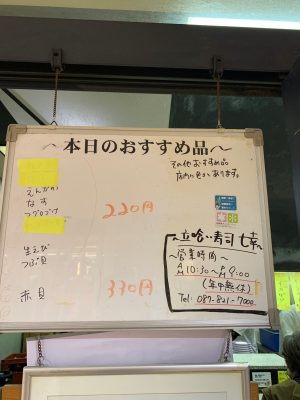 ～本日のおすすめ品～
その他おすすめ品
店内に色々あります。
えんがわ
なす
220円
生えび
つぶ貝
赤貝
330円
立喰い寿司 七幸
～営業時間～
AM10:30～PM9:00
(年中無休)
Tel: 087-821-7000